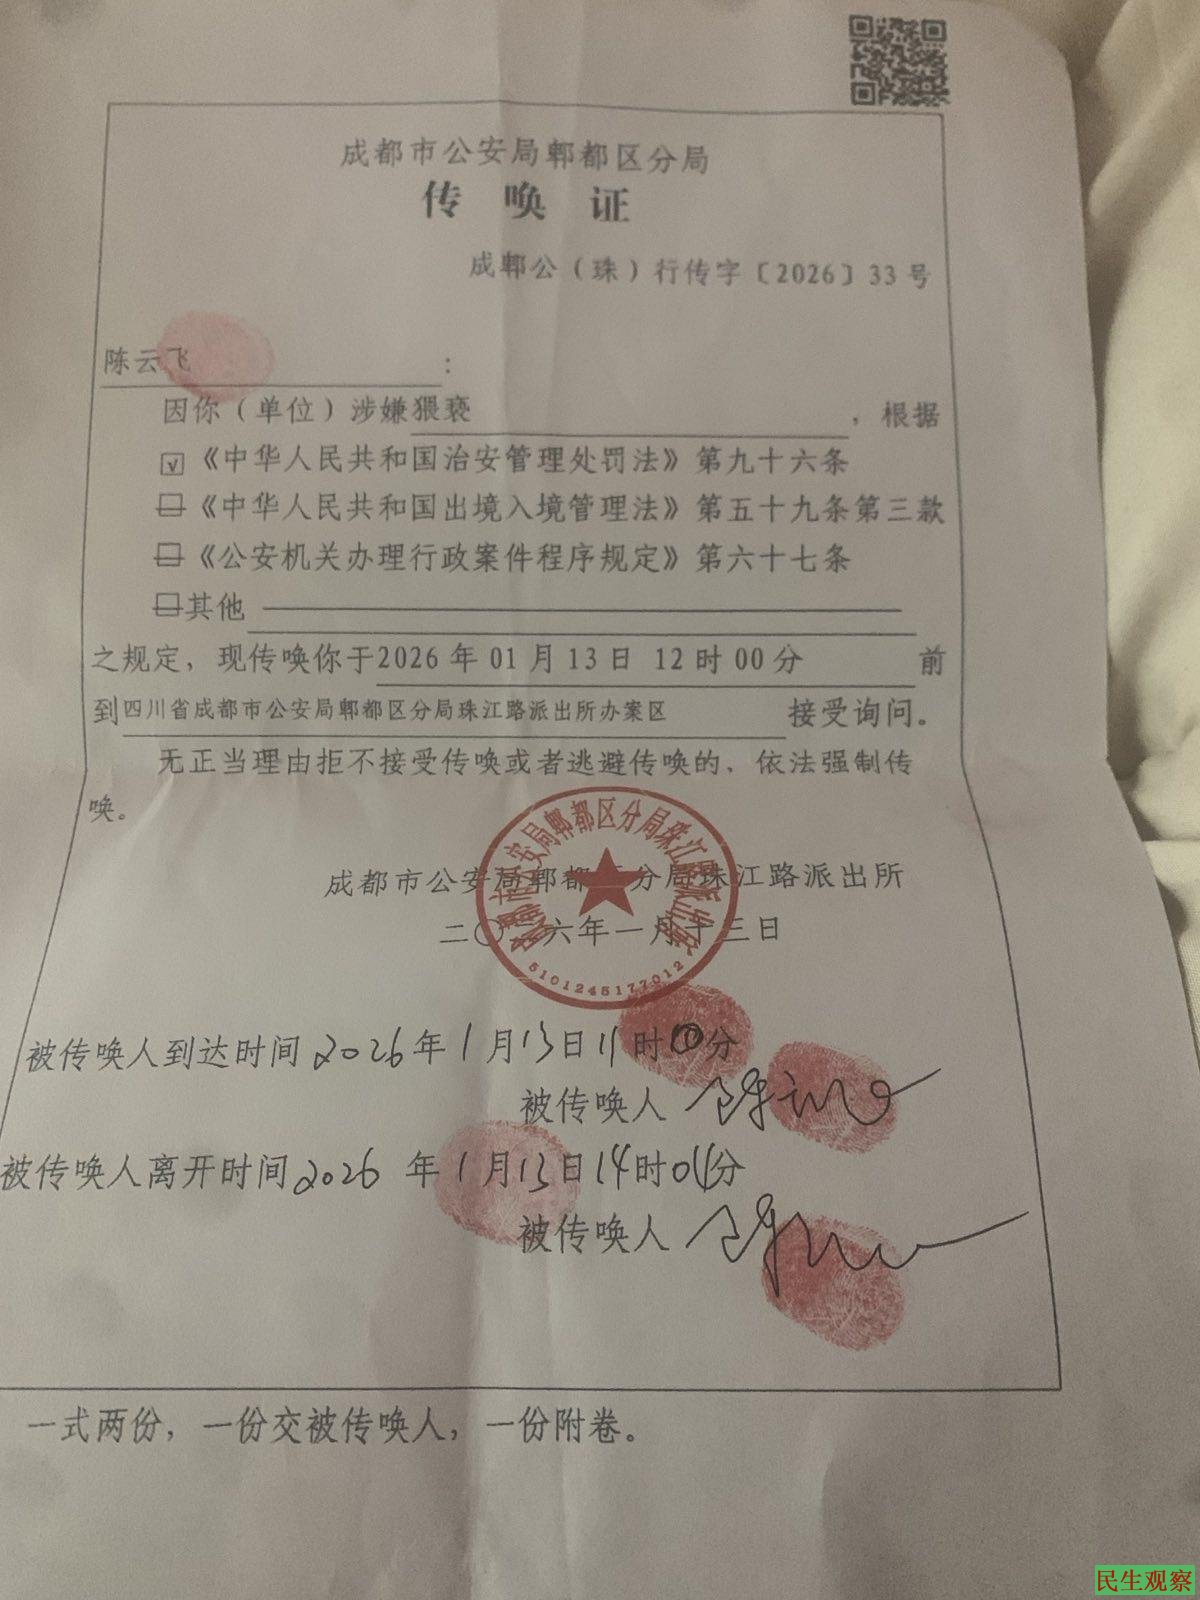 成都市公安局郫都区分局
传唤证
成郫公（珠）行传字〔2026〕33号
陈云飞：
因你（单位）涉嫌猥亵，根据
☑《中华人民共和国治安管理处罚法》第九十六条
□《中华人民共和国出境入境管理法》第五十九条第三款
□《公安机关办理行政案件程序规定》第六十七条
□其他
之规定，现传唤你于2026年01月13日 12时00分前
到四川省成都市公安局郫都区分局珠江路派出所办案区接受询问。
无正当理由拒不接受传唤或者逃避传唤的，依法强制传
唤。
成都市公安局郫都区分局珠江路派出所
二〇二六年一月十三日
成都市公安局郫都区分局珠江路派出所
5101245177012
被传唤人到达时间2026年1月13日11时00分
被传唤人 陈云飞
被传唤人离开时间2026年1月13日14时04分
被传唤人
一式两份，一份交被传唤人，一份附卷。
民生观察